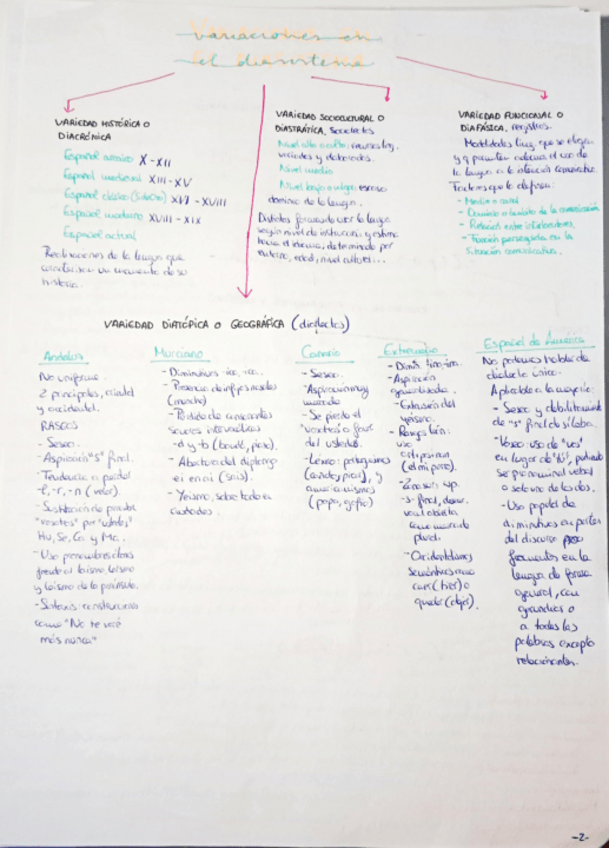 Variaciones en
el diasistema
VARIEDAD HISTÓRICA O
DIACRÓNICA
Español arcaico X - XII
Español medieval XIII - XV
Español clásico (S. de Oro) XVI - XVIII
Español moderno XVIII - XIX
Español actual
Realizaciones de la lengua que
caracterizan un momento de su
historia.
VARIEDAD SOCIOCULTURAL O
DIASTRÁTICA, Sociolectos
Nivel alto o culto, recursos ling.
variados y elaborados.
Nivel medio
Nivel bajo o vulgar, escaso
dominio de la lengua.
Distintas formas de usar la lengua
según nivel de instrucción y estima
hacia el idioma, determinado por
entorno, edad, nivel cultural...
VARIEDAD FUNCIONAL O
DIAFÁSICA, registros.
Modalidades ling. que se eligen
y q permiten adecuar el uso de
la lengua a la situación comunicativa.
Factores que lo definen:
- Medio o canal
- Dominio o ámbito de la comunicación
- Relación entre interlocutores.
- Función perseguida en la
situación comunicativa.
VARIEDAD DIATÓPICA O GEOGRÁFICA (dialectos)
Andaluz
No uniforme.
2 principales, oriental
y occidental.
RASGOS
- Seseo.
- Aspiración "s" final.
- Tendencia a perder
-l, -r, -n
- Sustitución de pronombre
"vosotros" por "ustedes",
Hu, Se, Ca y Ma.
- Uso pronombres átonos
frente al laísmo, leísmo
y loísmo de la península.
- Sintaxis: construcciones
como "No te veré
más nunca"
Murciano
- Diminutivos -ico, -ica.
- Presencia de infijos nasales
(muncho)
- Pérdida de consonantes
sonoras intervocálicas
-d y -b
- Abertura del diptongo
ei en ai (sais).
- Yeísmo, sobre todo en
ciudades.
Canario
- Seseo.
- Aspiración muy
marcada
- Se pierde el
"vosotros" a favor
del ustedes.
- Léxico: portuguesismos
y
americanismos
(papa, gofio)
Extremeño
- Dimin. -ino, -ina.
- Aspiración
generalizada.
- Extensión del
yeísmo.
- Rasgo león:
uso
art + posesivo
(el mi perro).
- Zonas sur, asp.
-s final,
vocal abierta
como marca de
plural.
- Occidentalismos
semánticos como
caer (tirar) o
quedar (dejar).
Español de América
No podemos hablar de
dialecto único.
Aplicable a la mayoría:
- Seseo y debilitamiento
de "s" final de sílaba.
- Voseo: uso de "vos"
en lugar de "tú", pudiendo
ser pronominal verbal
o solo uno de los dos.
- Uso papel de
diminutivos en partes
del discurso poco
frecuentes en la
lengua de forma
general, con
gerundios o
a todas las
palabras excepto
relacionantes.
-2-